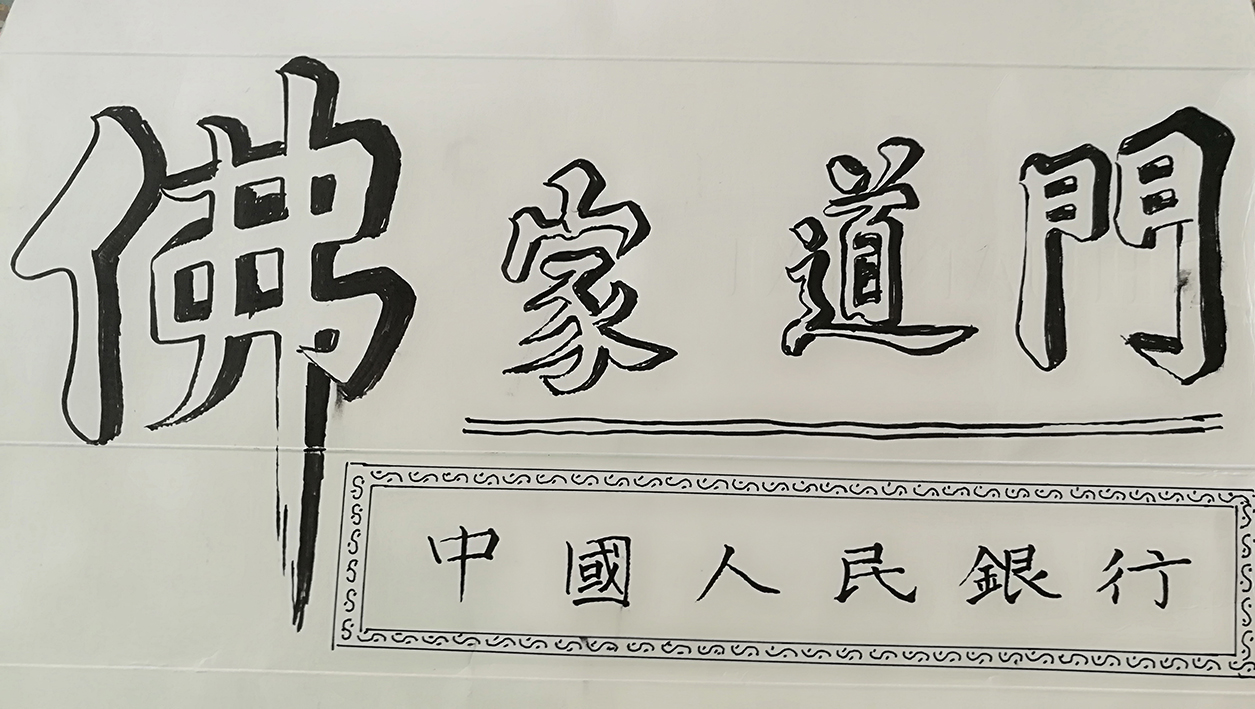 佛家道門
中國人民銀行